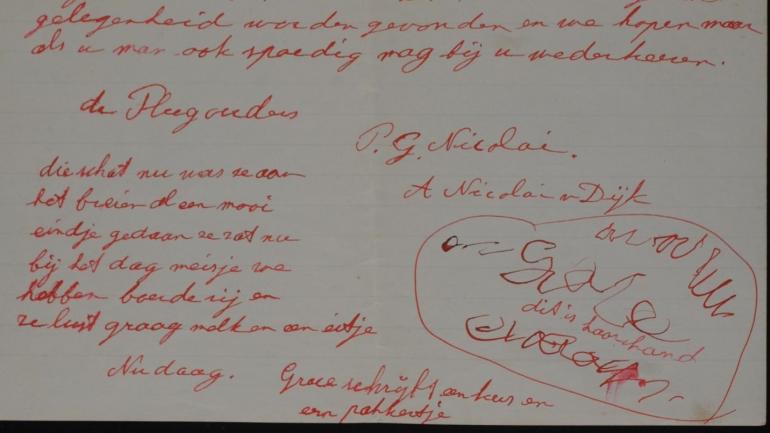 gelegenheid worden gevonden en we hopen maar
als u man ook spoedig mag bij u wederkeeren.
de Pleegouders
P. G. Nicolai.
A Nicolai v Dijk
die schat nu was ze aan
het breien al een mooi
eindje gedaan ze zat nu
bij het dag meisje we
hebben boerderij en
ze lust graag melk en een eitje
Nu daag.
Grace schrijft een kus en
een pakkertje
dit is haar hand